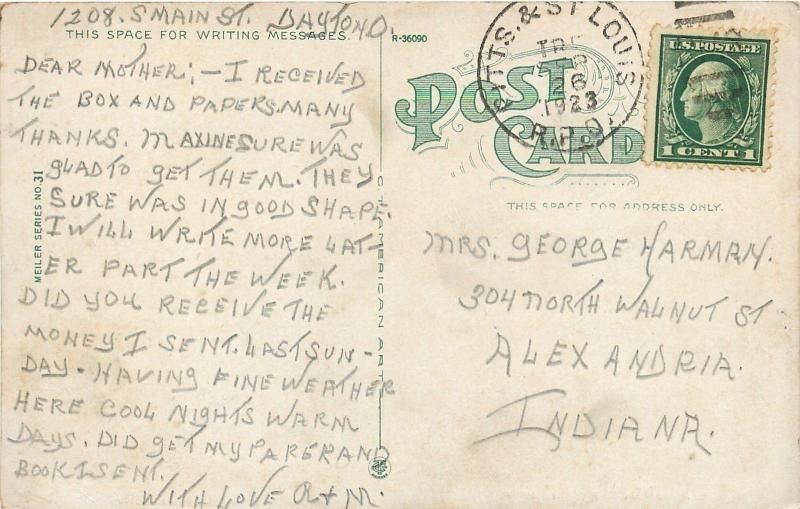 1208. S MAIN ST. DAYTON O.
THIS SPACE FOR WRITING MESSAGES.
DEAR MOTHER; — I RECEIVED
THE BOX AND PAPERS. MANY
THANKS. MAXINE SURE WAS
GLAD TO GET THEM. THEY
SURE WAS IN GOOD SHAPE.
I WILL WRITE MORE LAT-
ER PART THE WEEK.
DID YOU RECEIVE THE
MONEY I SENT. LAST SUN-
DAY. HAVING FINE WEATHER
HERE COOL NIGHTS WARM
DAYS. DID GET MY PAPER AND
BOOK I SENT.
WITH LOVE R + M.
MEILER SERIES NO. 31
AMERICAN ART
R-36090
POST
CARD
PITTS. & ST LOUIS
26
1923
R.P.O.
U.S. POSTAGE
1 CENT 1
THIS SPACE FOR ADDRESS ONLY.
MRS. GEORGE HARMAN.
304 NORTH WALNUT ST
ALEXANDRIA.
INDIANA.